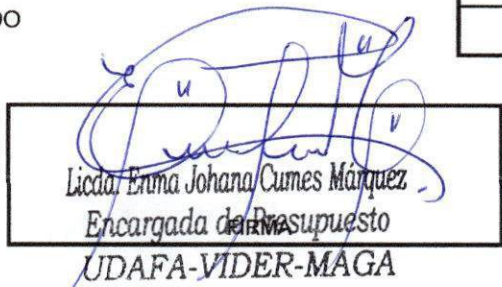 DO
Licda. Enma Johana Cumes Márquez
Encargada de Presupuesto
FIRMA
UDAFA-VIDER-MAGA